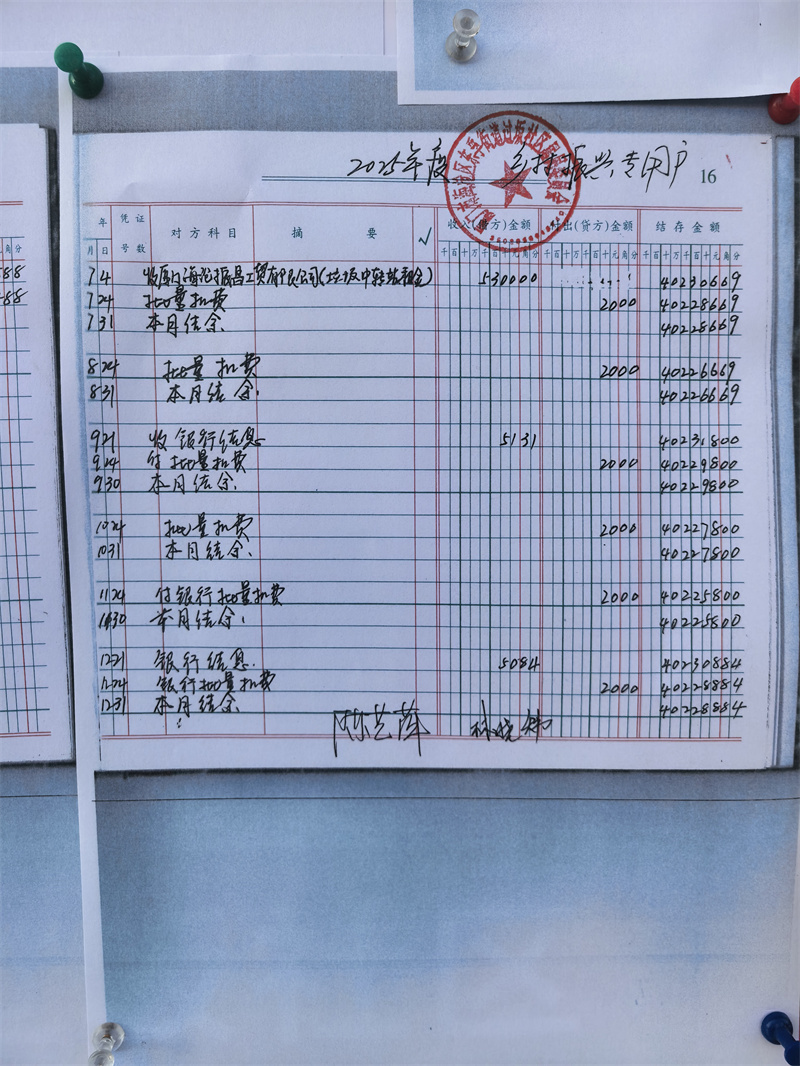 2025年度 乡村振兴专用户 16
年 凭证 对方科目 摘要 √ 收入(借方)金额 付出(贷方)金额 结存金额
月 日 号数 千百十万千百十元角分 千百十万千百十元角分 千百十万千百十元角分
7 4 收厦门海沧振昌工贸有限公司(垃圾中转站租金) 530000 40230669
7 24 批量扣费 2000 40228669
7 31 本月结余 40228669
8 24 批量扣费 2000 40226669
8 31 本月结余. 40226669
9 21 收银行结息 5131 40231800
9 24 付批量扣费 2000 40229800
9 30 本月结余. 40229800
10 24 批量扣费 2000 40227800
10 31 本月结余. 40227800
11 24 付银行批量扣费 2000 40225800
11 30 本月结余. 40225800
12 21 银行结息. 5084 40230884
12 24 银行批量扣费 2000 40228884
12 31 本月结余 40228884